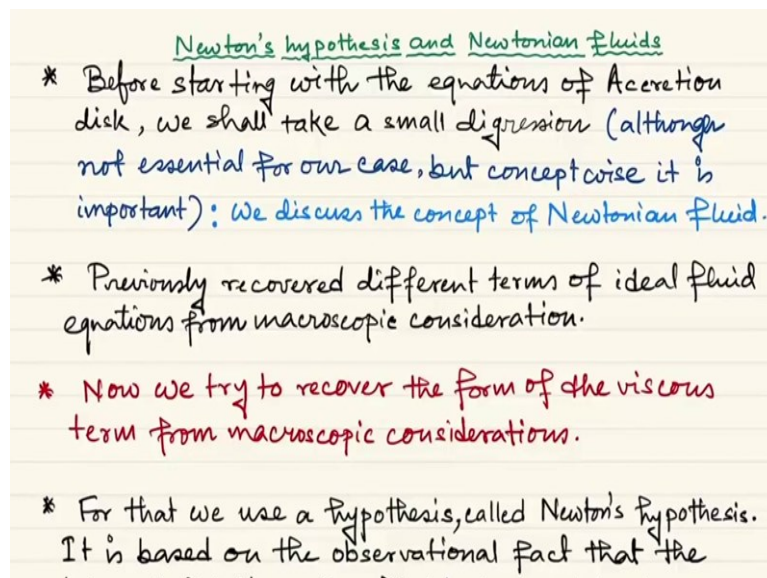 Newton's hypothesis and Newtonian fluids
* Before starting with the equations of Accretion
disk, we shall take a small digression (although
not essential for our case, but conceptwise it is
important): We discuss the concept of Newtonian fluid.
* Previously recovered different terms of ideal fluid
equations from macroscopic consideration.
* Now we try to recover the form of the viscous
term from macroscopic considerations.
* For that we use a hypothesis, called Newton's hypothesis.
It is based on the observational fact that the